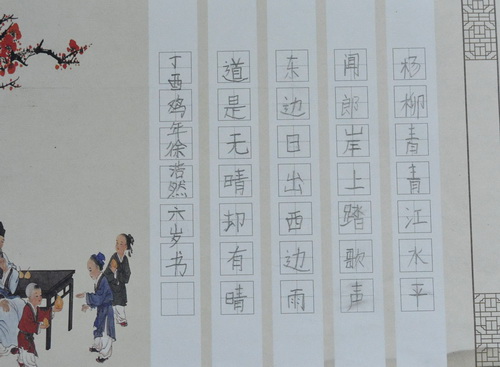 杨柳青青江水平
闻郎岸上踏歌声
东边日出西边雨
道是无晴却有晴
丁酉鸡年徐浩然六岁书